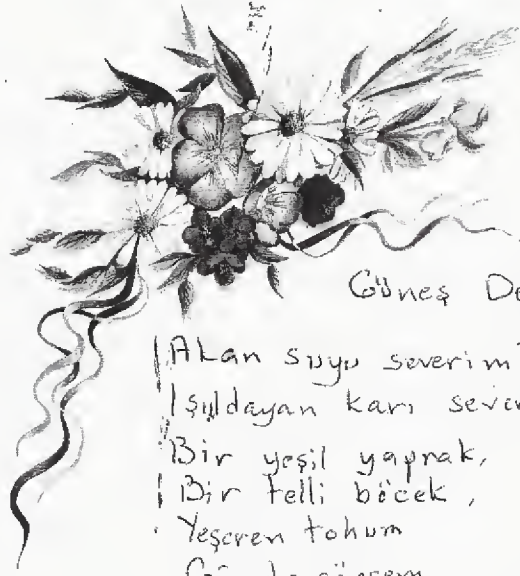 Güneş De
Akan suyu severim
Işıldayan karı sever
Bir yeşil yaprak,
Bir telli böcek,
Yeşeren tohum
Güneşte görsem